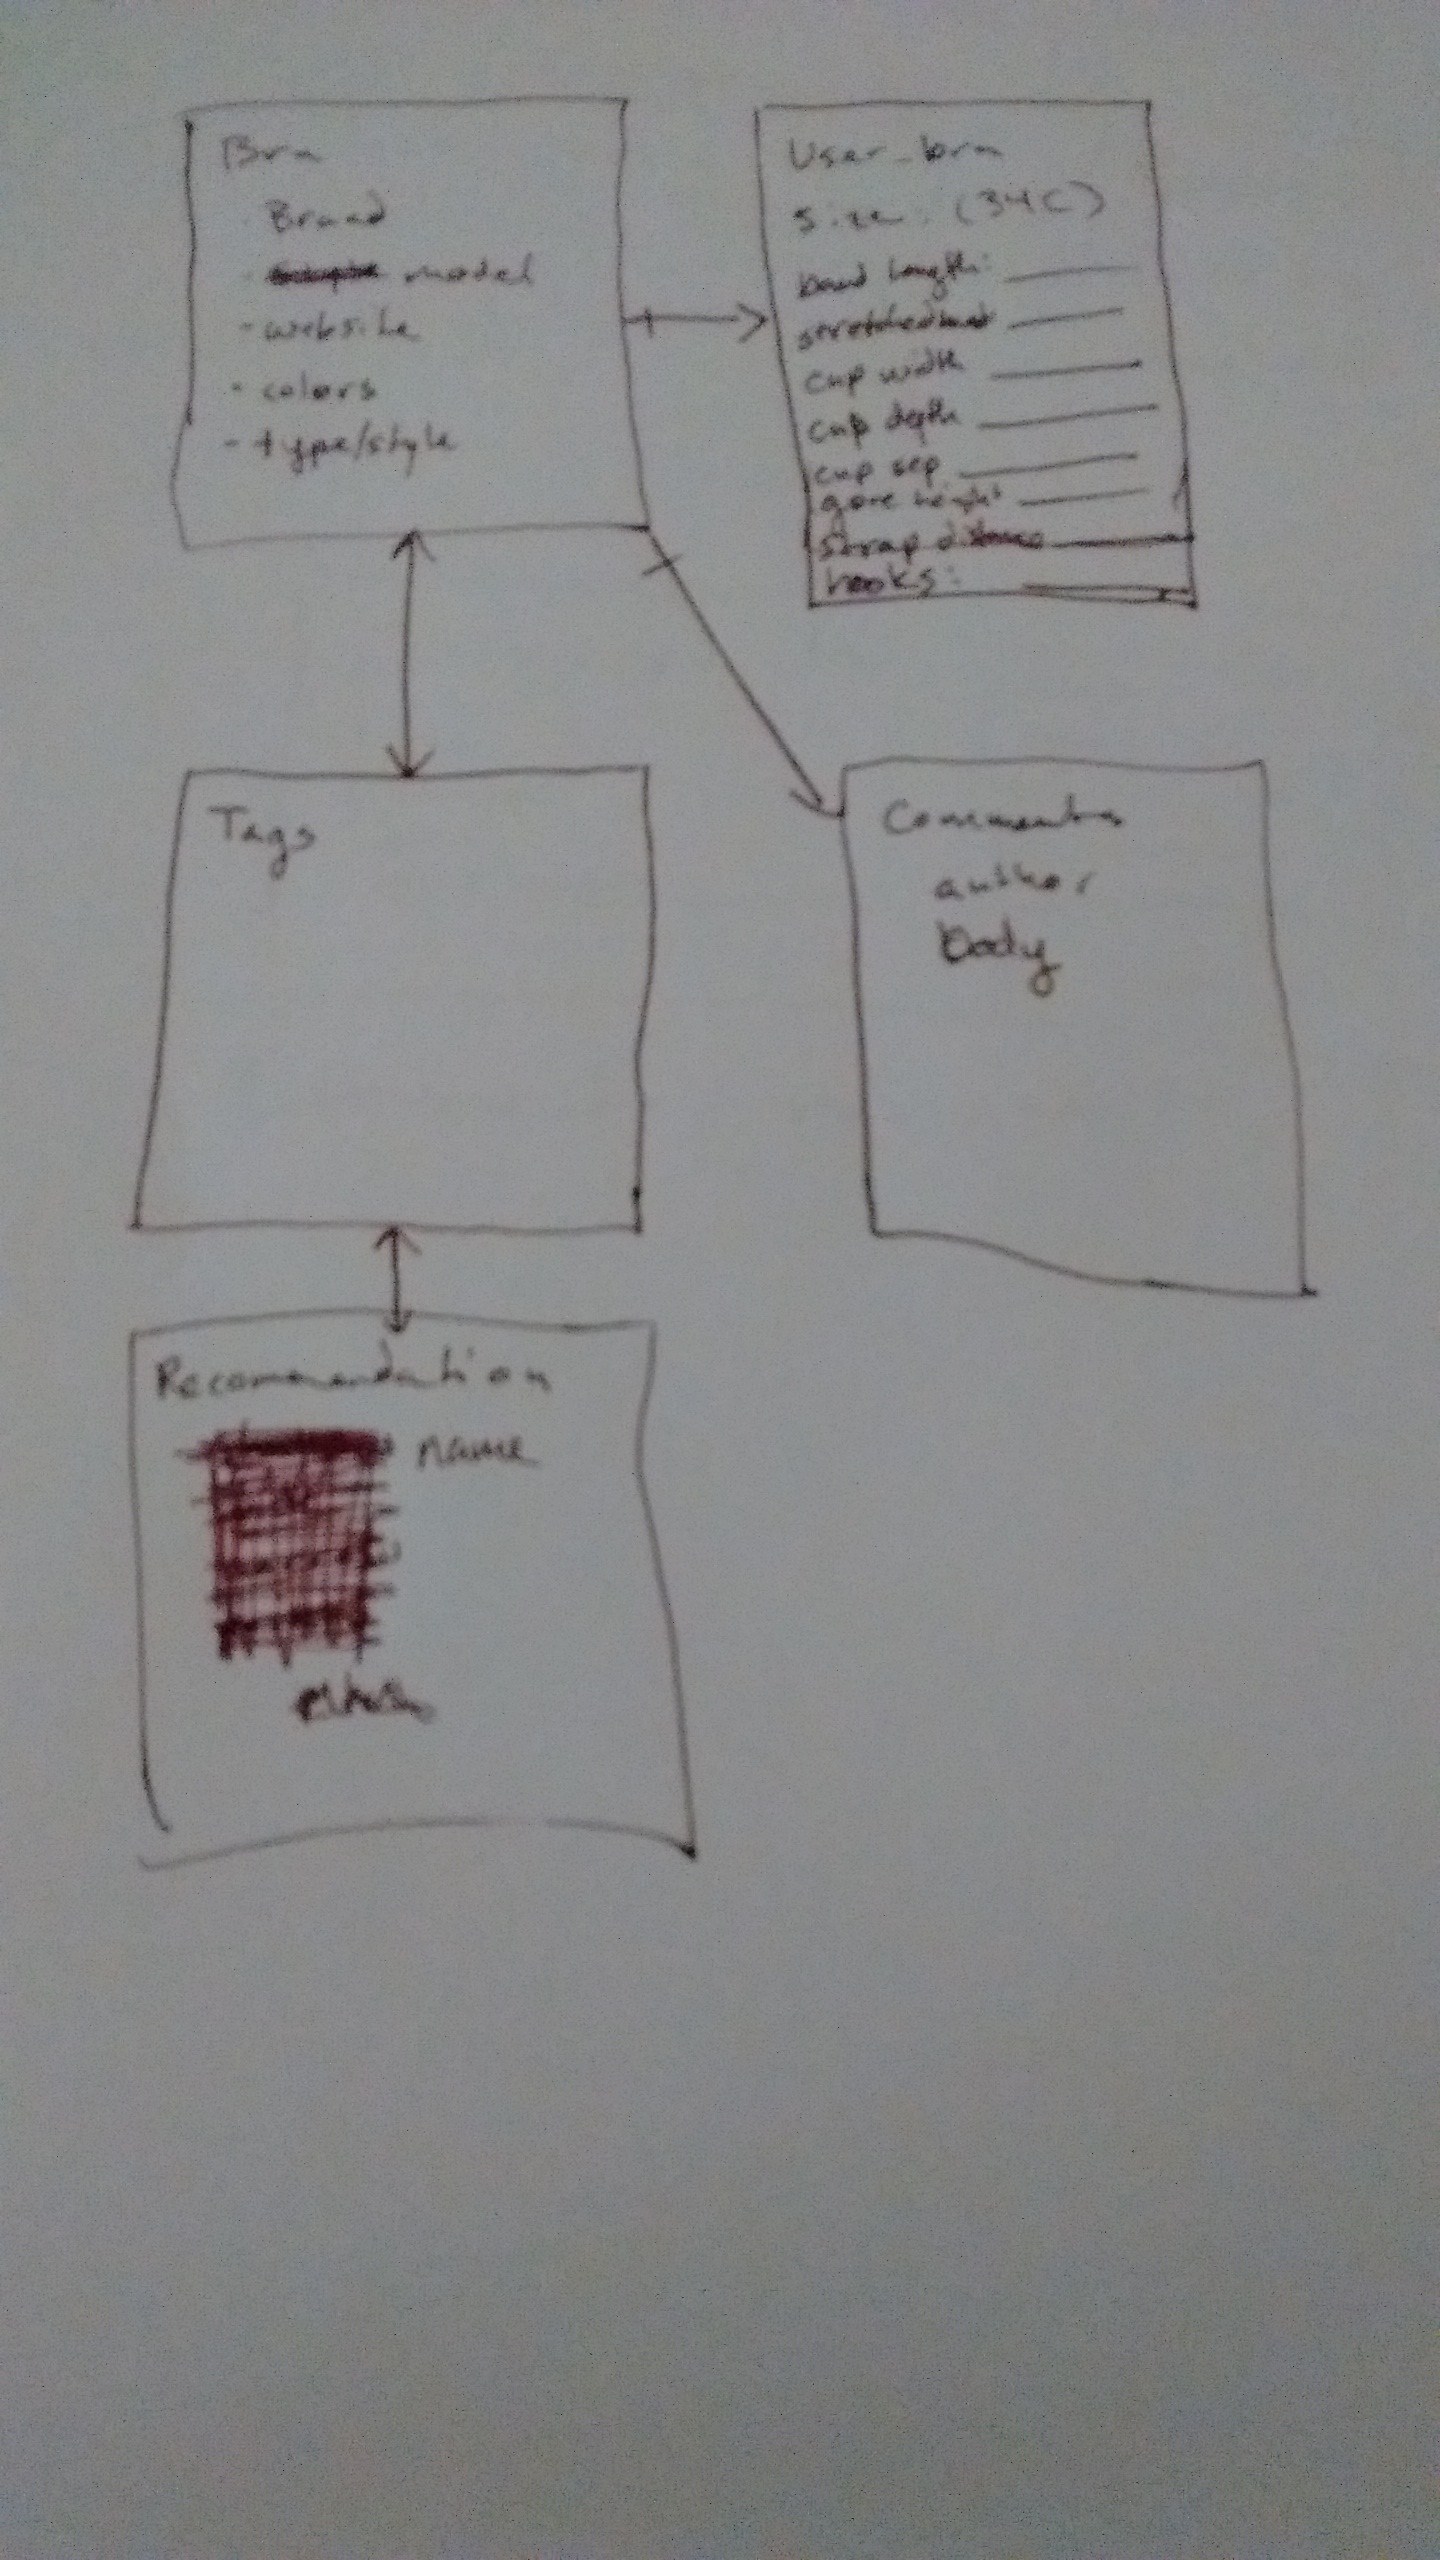 Bra
Brand
model
- website
- colors
- type/style
User_bra
Size: (34C)
band length:
stretched
cup width
cup depth
cup sep
gore height
strap distance
hooks:
Tags
Comments
author
body
Recommendation
name